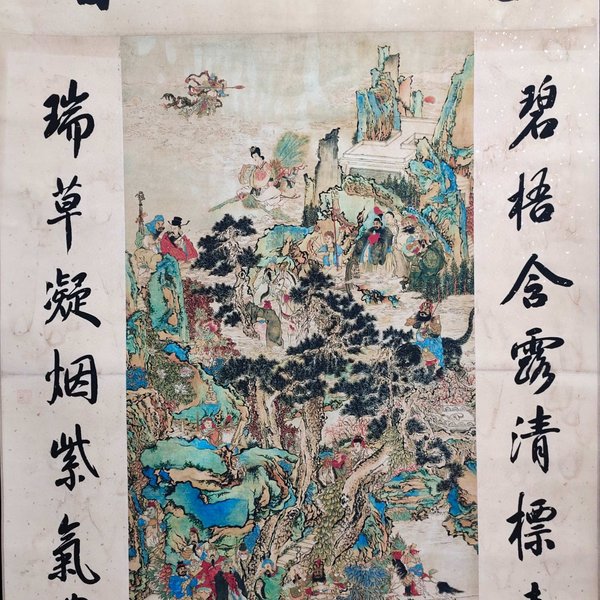 碧梧含露清標
瑞草凝烟紫氣